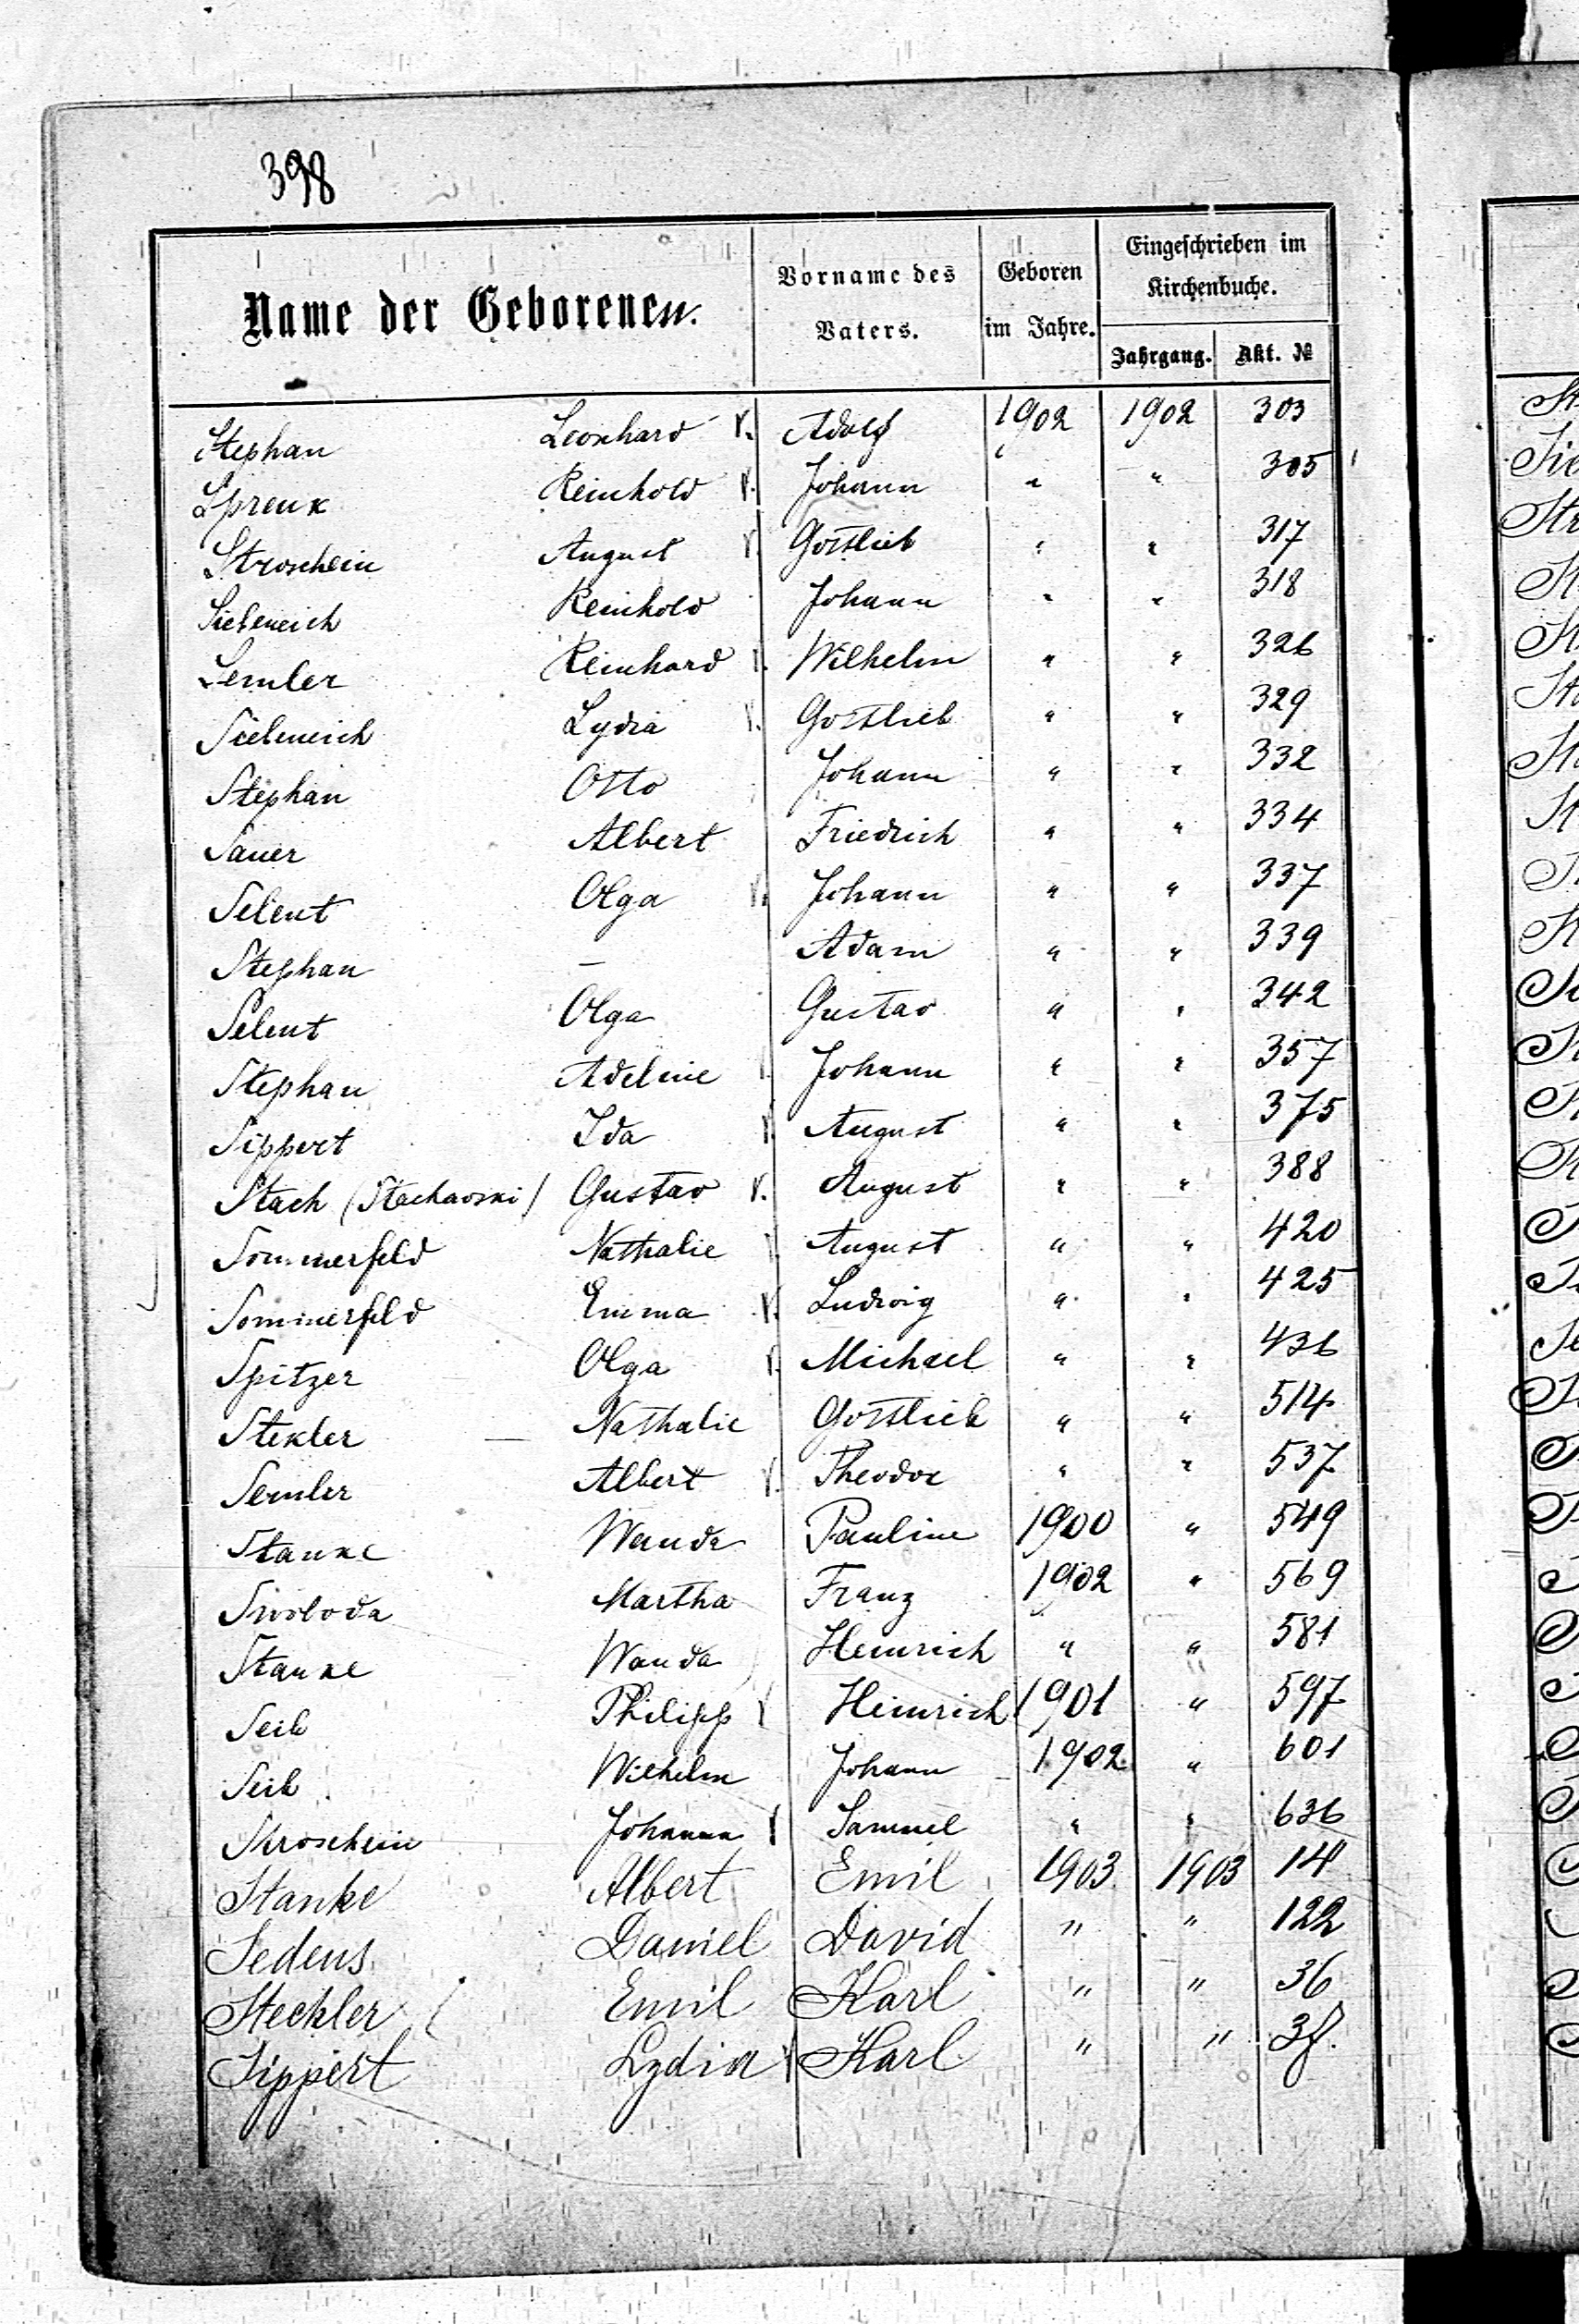 398
Name der Geborenen. Vorname des Vaters. Geboren im Jahre. Eingeschrieben im Kirchenbuche. Jahrgang. Akt. №
Stephan Leonhard V. Adolf 1902 1902 303
Sprenk Reinhold V. Johann " " 305
Stroschein August V. Gottlieb " " 317
Siebeneich Reinhold Johann " " 318
Semler Reinhard V. Wilhelm " " 326
Siebeneich Lydia V. Gottlieb " " 329
Stephan Otto Johann " " 332
Sauer Albert Friedrich " " 334
Selent Olga V. Johann " " 337
Stephan — Adam " " 339
Selent Olga Gustav " " 342
Stephan Adeline Johann " " 357
Sippert Ida V. August " " 375
Stach (Stachavski) Gustav V. August " " 388
Sommerfeld Nathalie V. August " " 420
Sommerfeld Emma V. Ludwig " " 425
Spitzer Olga V. Michael " " 436
Stekler — Nathalie Gottlieb " " 514
Semler Albert V. Theodor " " 537
Stanke Wanda Pauline 1900 " 549
Swoboda Martha Franz 1902 " 569
Stanke Wanda Heinrich " " 581
Seib Philipp V Heinrich 1901 " 597
Seib Wilhelm Johann 1902 " 601
Stroschein Johanna V Samuel " " 636
Stanke Albert Emil 1903 1903 14
Sedens Daniel David " " 122
Steckler Emil Karl " " 36
Sippert Lydia V Karl " "